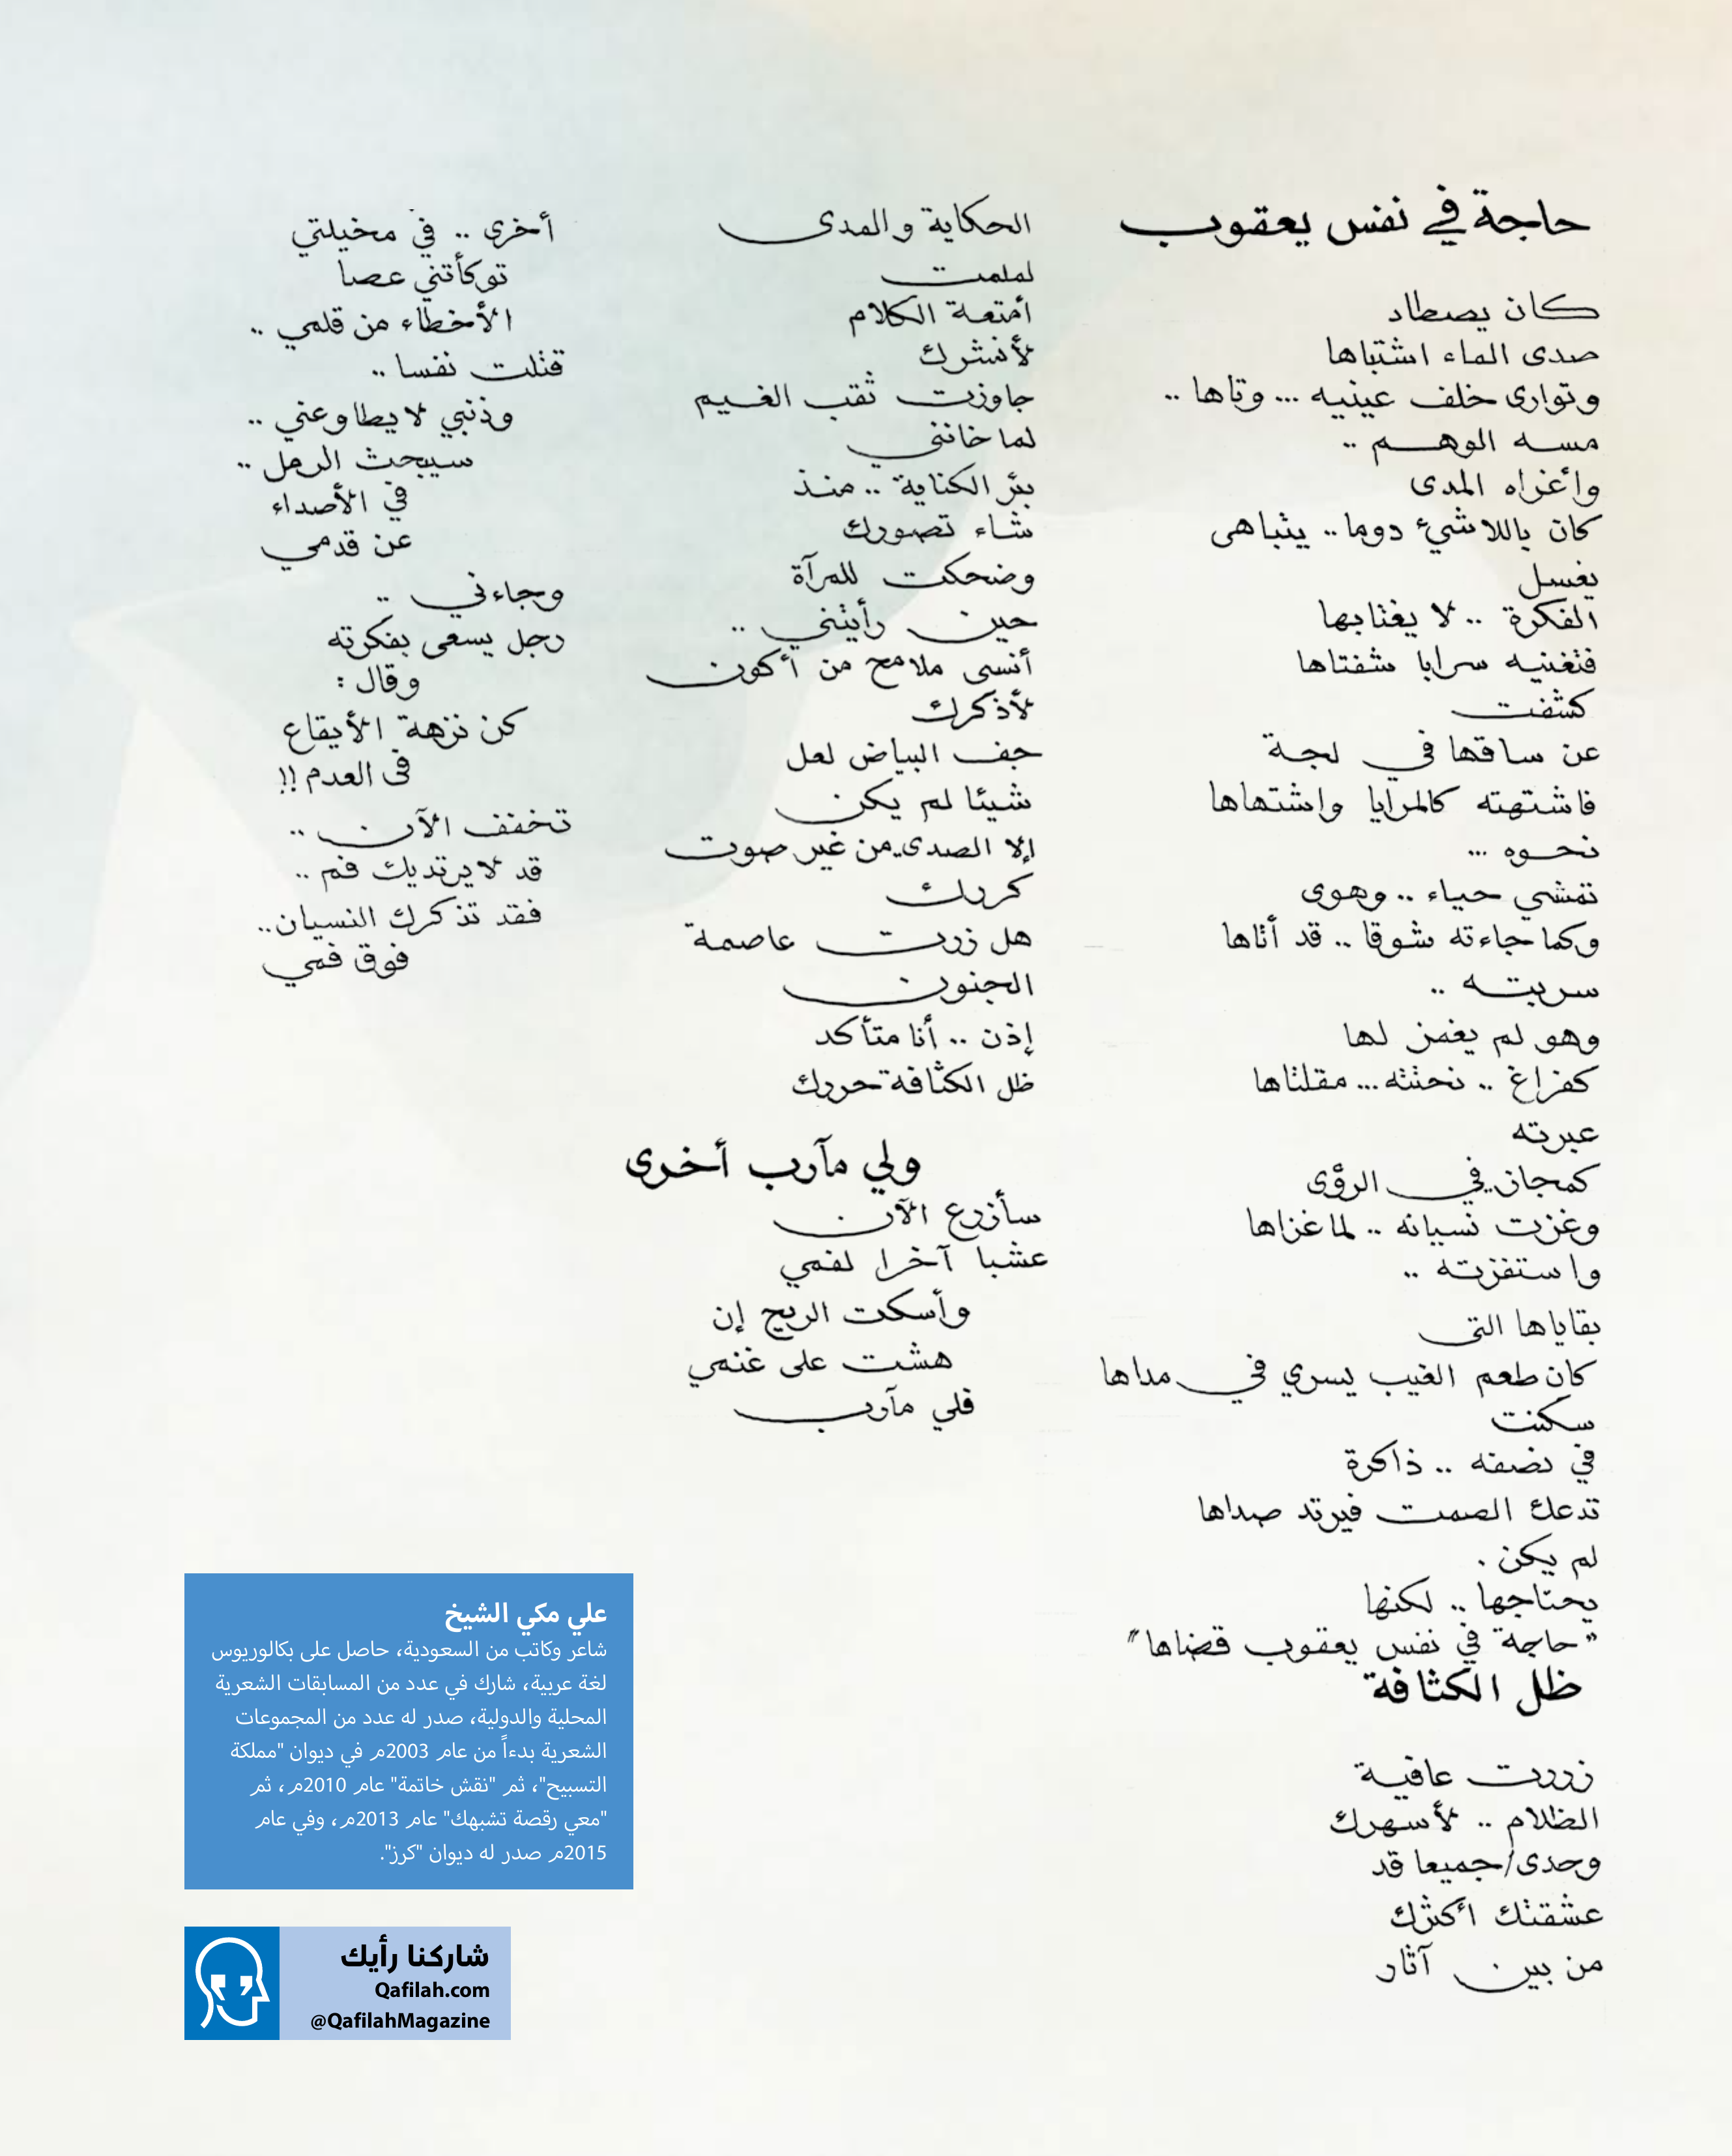 حاجة في نفس يعقوب
كان يصطاد
صدى الماء اشتباها
وتوارى خلف عينيه ... وتاها ..
مسه الوهم ..
وأغراه المدى
كان باللاشيء دوما.. يتباهى
يغسل
الفكرة .. لا يغتابها
فتغنيه سرايا شفتاها
كشفت
عن ساقها في لجة
فاشتهته كالمرايا واشتهاها
نحوه ...
تمشي حياء .. وهوى
وكما جاءته شوقا .. قد أتاها
سربته ..
وهو لم يغمز لها
كفراغ .. نحتته... مقلتاها
عبرته
كمجاز في الرؤى
وغزت نسيانه .. لما غزاها
واستفزته ..
بقاياها التي
كان طعم الغيب يسري في مداها
سكنت
في نصفه .. ذاكرة
تدعك الصمت فيرتد صداها
لم يكن .
يحتاجها .. لكنها
"حاجة في نفس يعقوب قضاها"
ظل الكثافة
زررت عافية
الظلام .. لأسهرك
وحدي/جميعا قد
عشقتك أكثرك
من بين آثار
الحكاية والمدى
لملمت
أمتعة الكلام
لأنثرك
جاوزت ثقب الغيم
لما خانني
بئر الكناية .. منذ
شاء تصورك
وضحكت للمرآة
حين رأيتني ..
أنسى ملامح من أكون
لأذكرك
جف البياض لعل
شيئا لم يكن
إلا الصدى من غير صوت
كررك
هل زرت عاصمة
الجنون
إذن .. أنا متأكد
ظل الكثافة حررك
ولي مآرب أخرى
سأزرع الآن
عشبا آخرا لفمي
وأسكت الريح إن
هشت على غنمي
فلي مآرب
أخرى .. في مخيلتي
توكأتني عصا
الأخطاء من قلمي ..
قتلت نفسا ..
وذنبي لا يطاوعني ..
سيبحث الرمل ..
في الأصداء
عن قدمي
وجاءني ..
رجل يسعى بفكرته
وقال :
كن نزهة الأيقاع
في العدم !!
تخفف الآن ..
قد لا يرتديك فم ..
فقد تذكرك النسيان..
فوق فمي
علي مكي الشيخ
شاعر وكاتب من السعودية، حاصل على بكالوريوس
لغة عربية، شارك في عدد من المسابقات الشعرية
المحلية والدولية، صدر له عدد من المجموعات
الشعرية بدءاً من عام 2003م في ديوان "مملكة
التسبيح"، ثم "نقش خاتمة" عام 2010م، ثم
"معي رقصة تشبهك" عام 2013م، وفي عام
2015م صدر له ديوان "كرز".
شاركنا رأيك
Qafilah.com
@QafilahMagazine